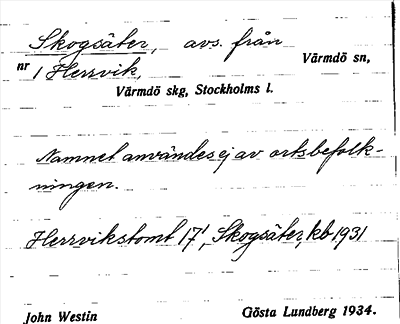 Skogsäter, avs. från Värmdö sn,
nr 1 Herrvik,
Värmdö skg, Stockholms l.
Namnet användes ej av ortsbefolk-
ningen.
Herrvikstomt 17¹, Skogsäter, kb 1931
John Westin Gösta Lundberg 1934.